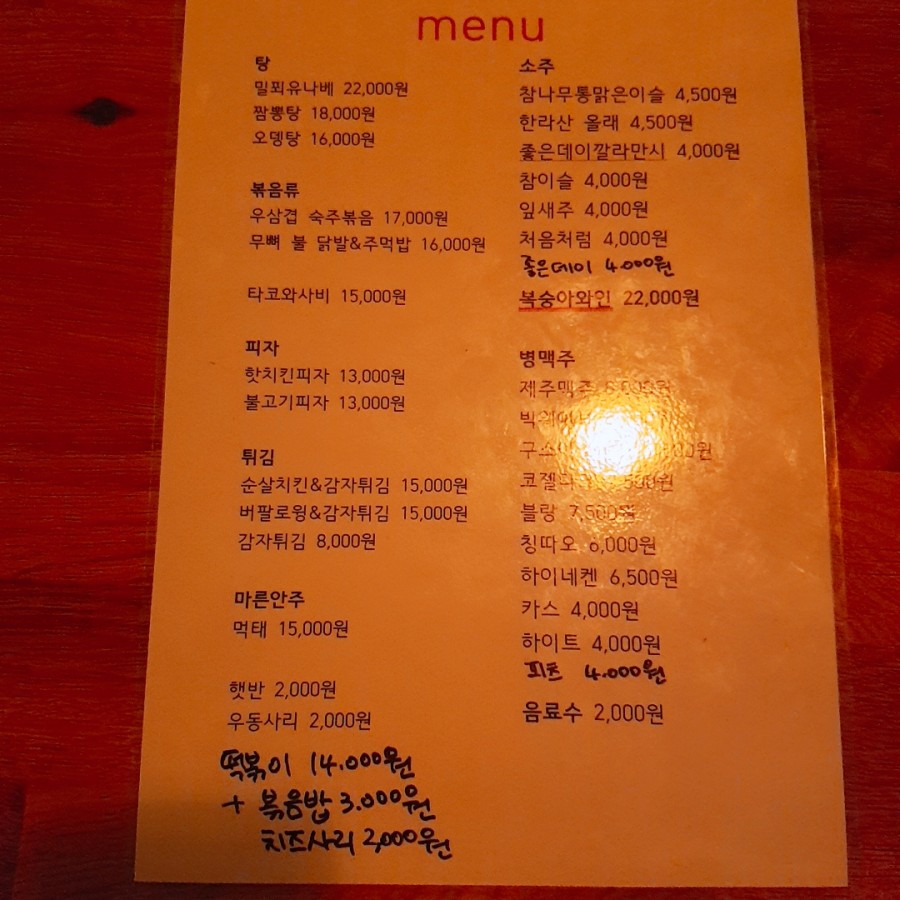 menu
탕
밀푀유나베 22,000원
짬뽕탕 18,000원
오뎅탕 16,000원
볶음류
우삼겹 숙주볶음 17,000원
무뼈 불 닭발&주먹밥 16,000원
타코와사비 15,000원
피자
핫치킨피자 13,000원
불고기피자 13,000원
튀김
순살치킨&감자튀김 15,000원
버팔로윙&감자튀김 15,000원
감자튀김 8,000원
마른안주
먹태 15,000원
햇반 2,000원
우동사리 2,000원
떡볶이 14.000원
+ 볶음밥 3.000원
치즈사리 2,000원
소주
참나무통맑은이슬 4,500원
한라산 올래 4,500원
좋은데이깔라만시 4,000원
참이슬 4,000원
잎새주 4,000원
처음처럼 4,000원
좋은데이 4.000원
복숭아와인 22,000원
병맥주
제주맥주
블랑 7,500원
칭따오 6,000원
하이네켄 6,500원
카스 4,000원
하이트 4,000원
피츠 4.000원
음료수 2,000원